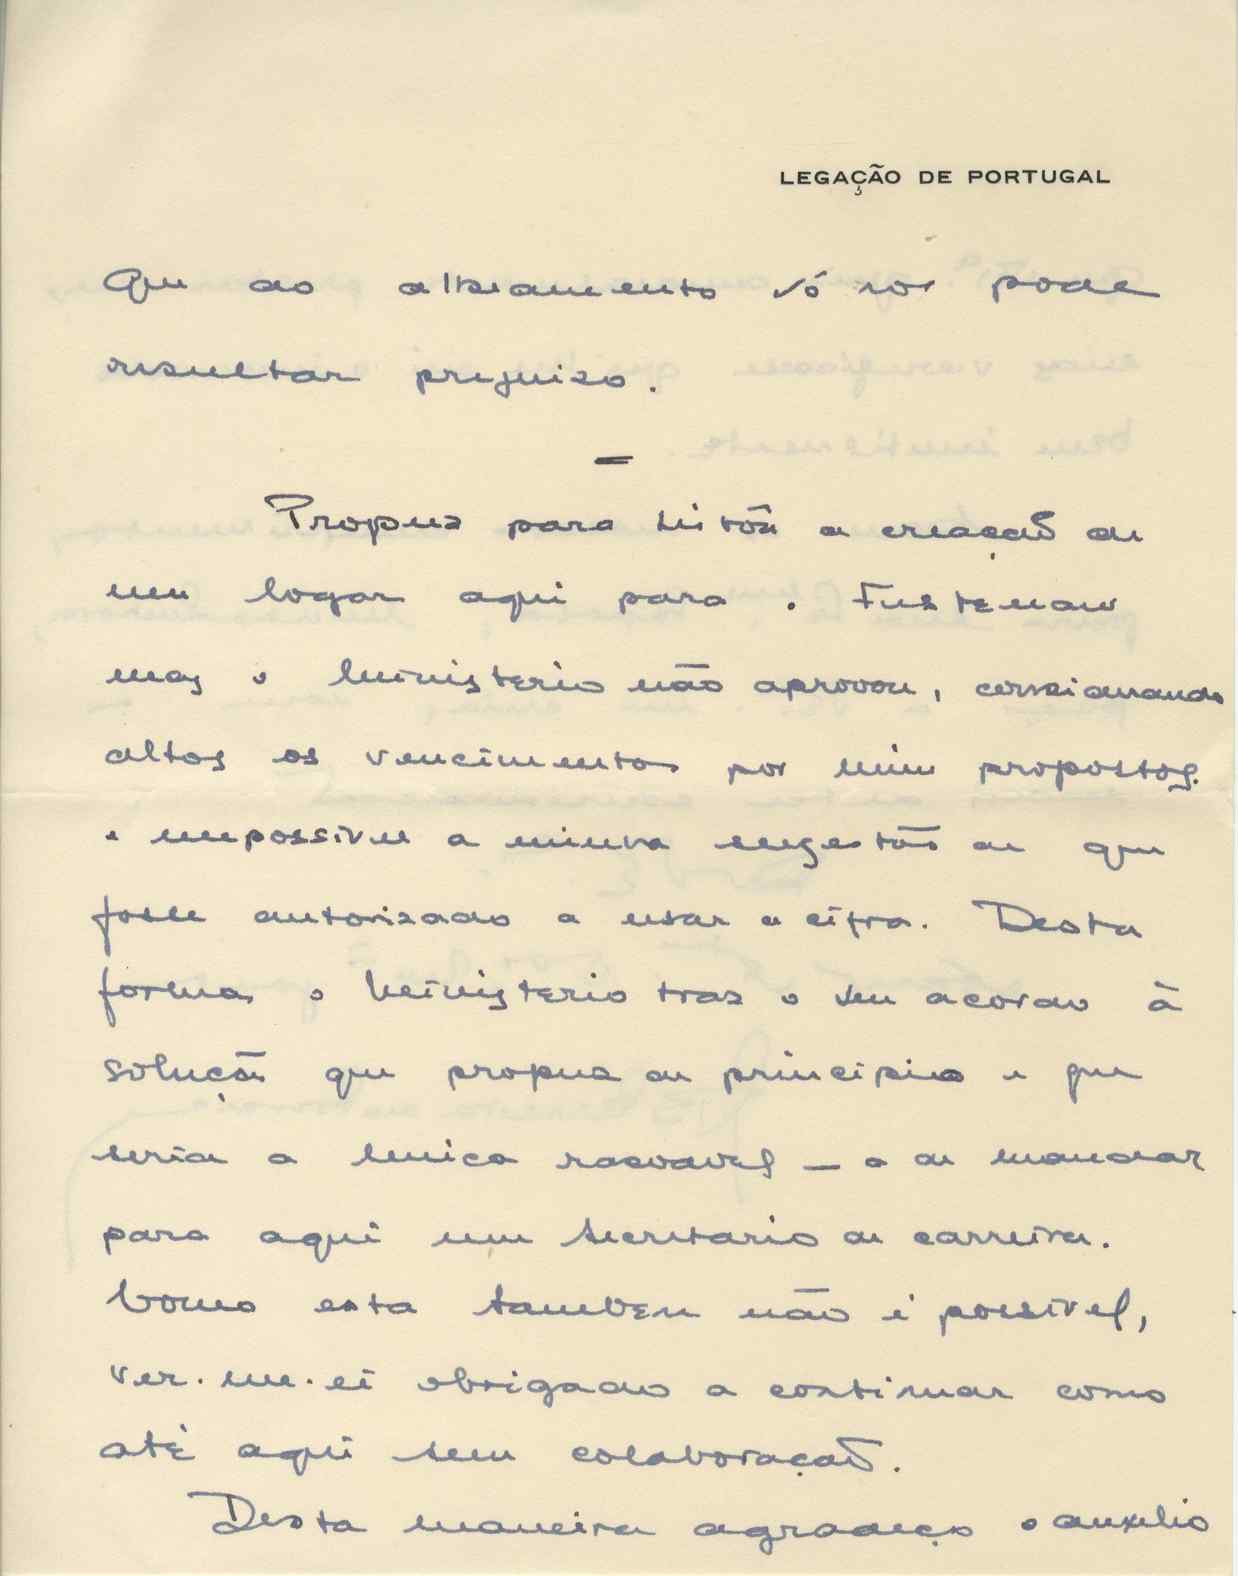 LEGAÇÃO DE PORTUGAL
que ao alheamento só nos pode
resultar prejuizo.
—
Propuz para Lisbôa a creação de
um logar aqui para o
mas o Ministerio não aprovou, considerando
altos os vencimentos por mim propostos
e impossivel a minha sugestão de que
fosse autorizado a usar a cifra. Desta
forma o Ministerio traz o seu acordo à
solução que propuz de principio e que
seria a unica rasoavel — a de mandar
para aqui um secretario de carreira.
Como esta tambem não é possivel,
ver-me-ei obrigado a continuar como
até aqui sem colaboração.
Desta maneira agradeço o auxilio